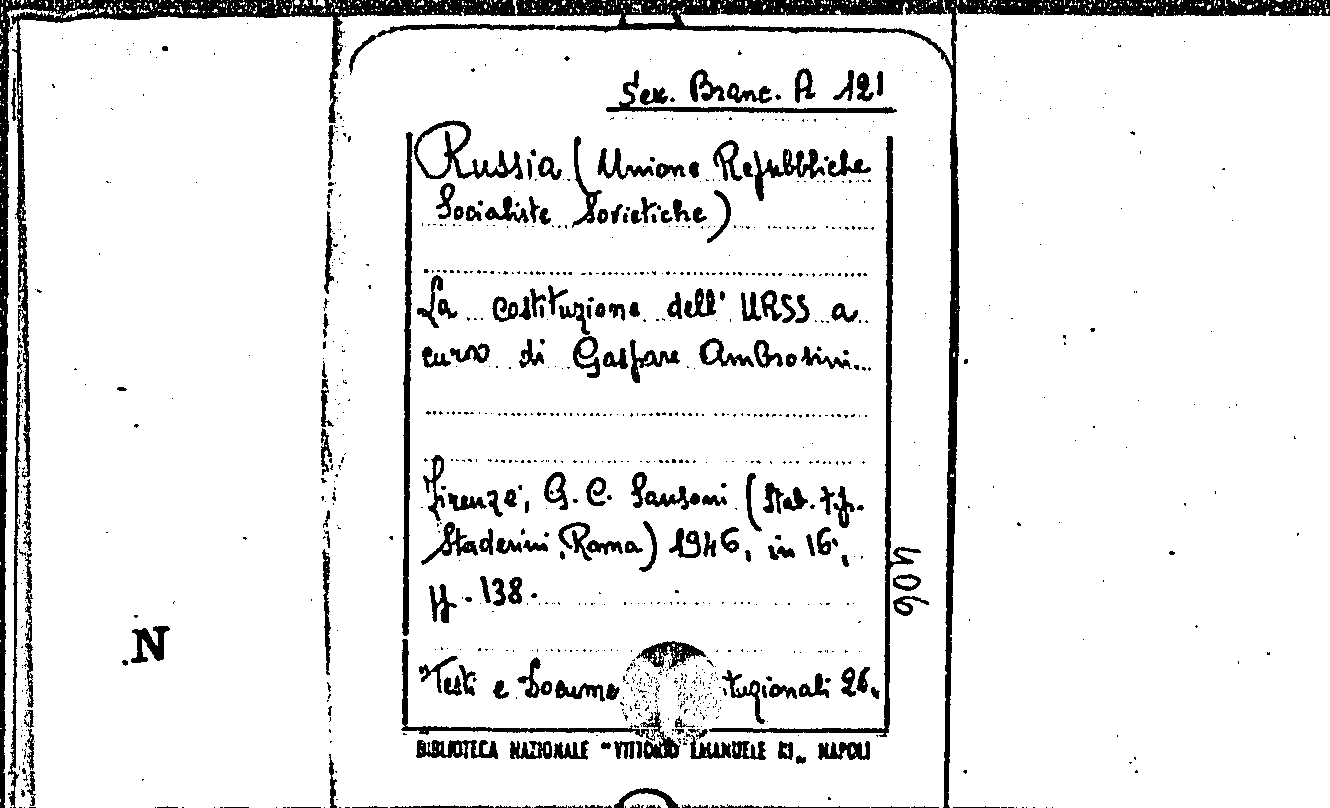 Sez. Branc. A 121
Russia (Unione Repubbliche
Socialiste Sovietiche)
La costituzione dell' URSS a
cura di Gaspare Ambrosini...
Firenze, G. C. Sansoni (Stab. tip.
Staderini, Roma) 1946, in 16°,
pp. 138.
"Testi e Docume tuzionali 26"
BIBLIOTECA NAZIONALE "VITTORIO EMANUELE III" NAPOLI
406
N